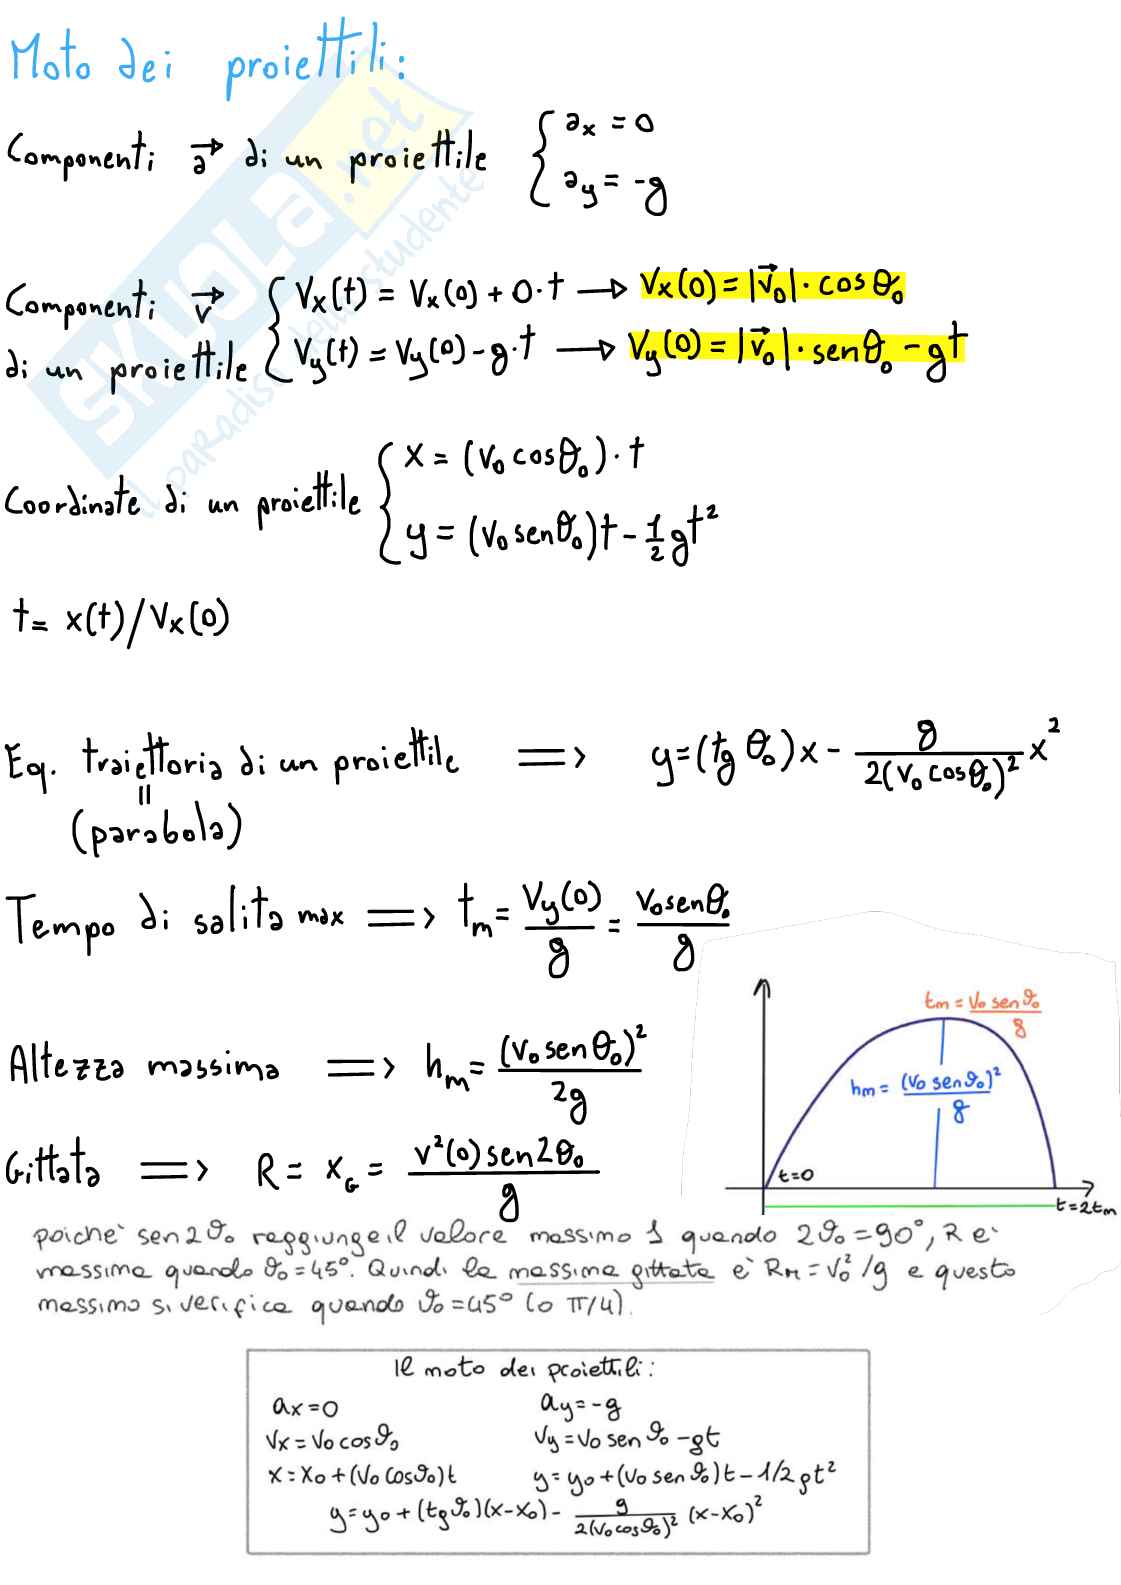 Moto dei proiettili:
Componenti a⃗ di un proiettile { ax = 0
ay = -g
Componenti v⃗ di un proiettile { Vx(t) = Vx(0) + 0·t → Vx(0) = |v⃗₀|·cosθ₀
Vy(t) = Vy(0) - g·t → Vy(0) = |v⃗₀|·senθ₀ - gt
Coordinate di un proiettile { x = (v₀ cosθ₀)·t
y = (v₀ senθ₀)t - 1/2 gt²
t = x(t)/Vx(0)
Eq. traiettoria di un proiettile => y = (tg θ₀)x - g/2(v₀ cosθ₀)² x²
=
(parabola)
Tempo di salita max => tm = Vy(0)/g = v₀senθ₀/g
Altezza massima => hm = (v₀ sen θ₀)²/2g
Gittata => R = xG = v²(0) sen2θ₀/g
tm = v₀ sen ϑ₀/g
hm = (v₀ sen ϑ₀)²/g
t=0
t=2tm
poiche' sen2ϑ₀ raggiunge il valore massimo 1 quando 2ϑ₀=90°, R e'
massima quando ϑ₀=45°. Quindi la massima gittata e' RM = v₀²/g e questo
massimo si verifica quando ϑ₀=45° (o π/4).
Il moto dei proiettili:
ax=0 ay=-g
vx=v₀ cosϑ₀ vy=v₀ sen ϑ₀-gt
x=x₀+(v₀ cosϑ₀)t y=y₀+(v₀ sen ϑ₀)t-1/2 gt²
y=y₀+(tgϑ₀)(x-x₀)- g/2(v₀cosϑ₀)² (x-x₀)²
SKUOLA.net
il paradiso dello studente